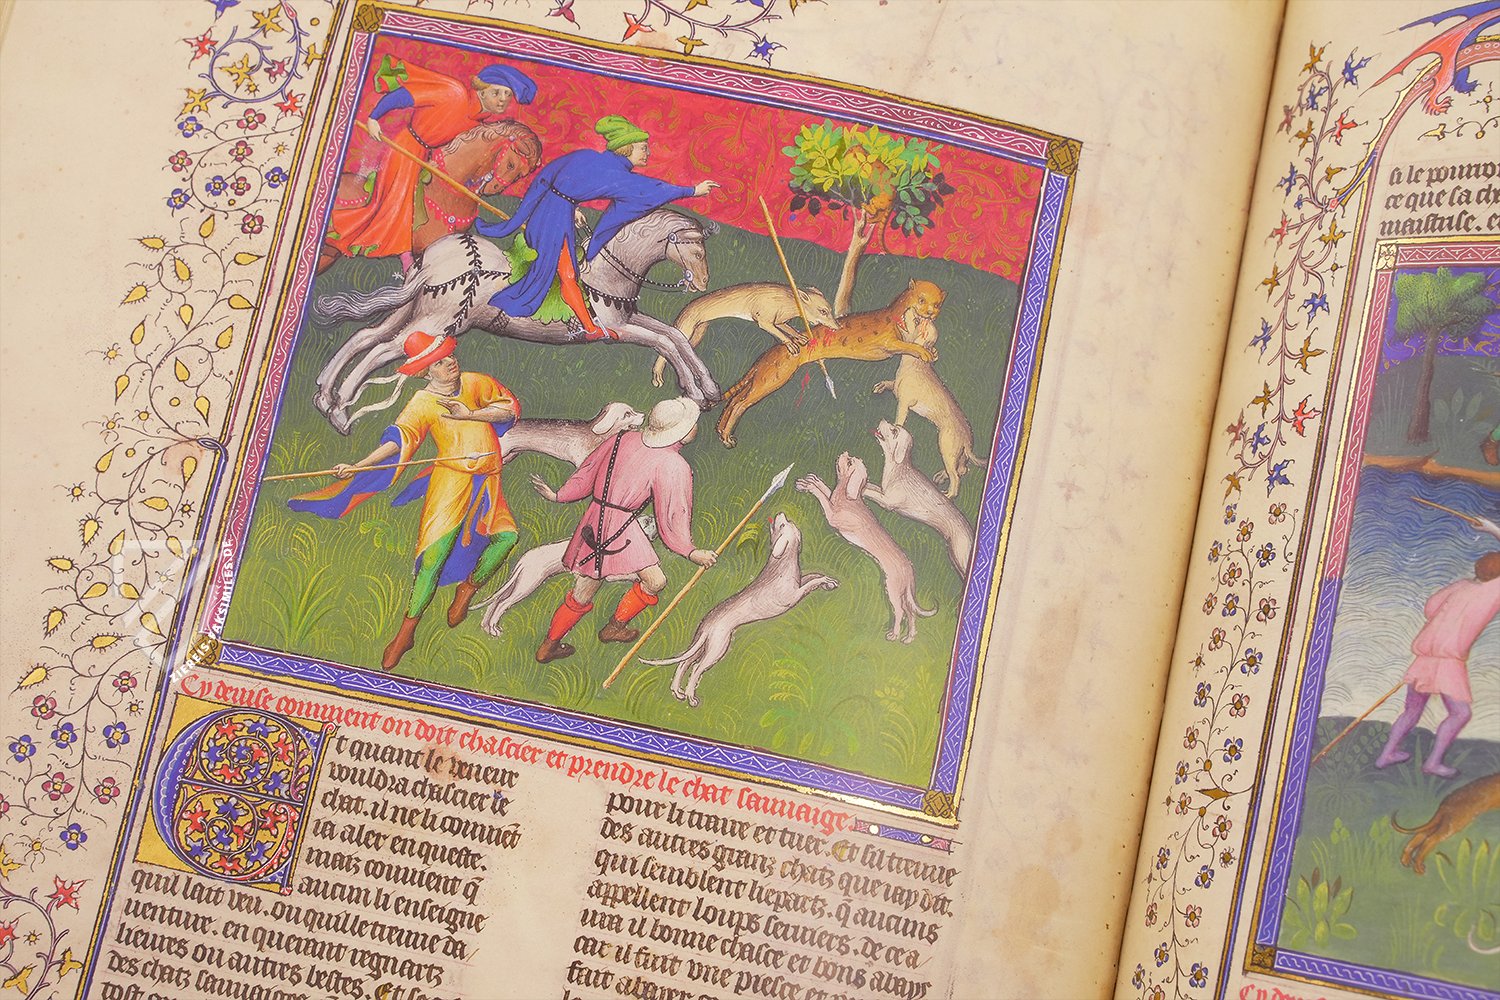 Cy devise comment on doit chascier et prendre le chat sauvaige.
Et quant le veneur
vouldra chascier le
chat. il ne li convient
ia aler en queste.
maiz convient q̄
aucun li enseigne
quil lait veu. ou quil le treuve da
venture. en querant regnartz
lievres ou autres bestes. Et
des chatz sauvaiges
tost
pour li traire et tuer. Et sil treuve
des autres granz chatz que iay dit.
qui semblent liepartz. q̄ aucuns
appellent loups serviers. de ce a
ura il bonne chasce et bons abays
car il fuit une piesce et
fait abayer
si le
ce que sa
maistrise. e
ZIEREIS FAKSIMILES.DE